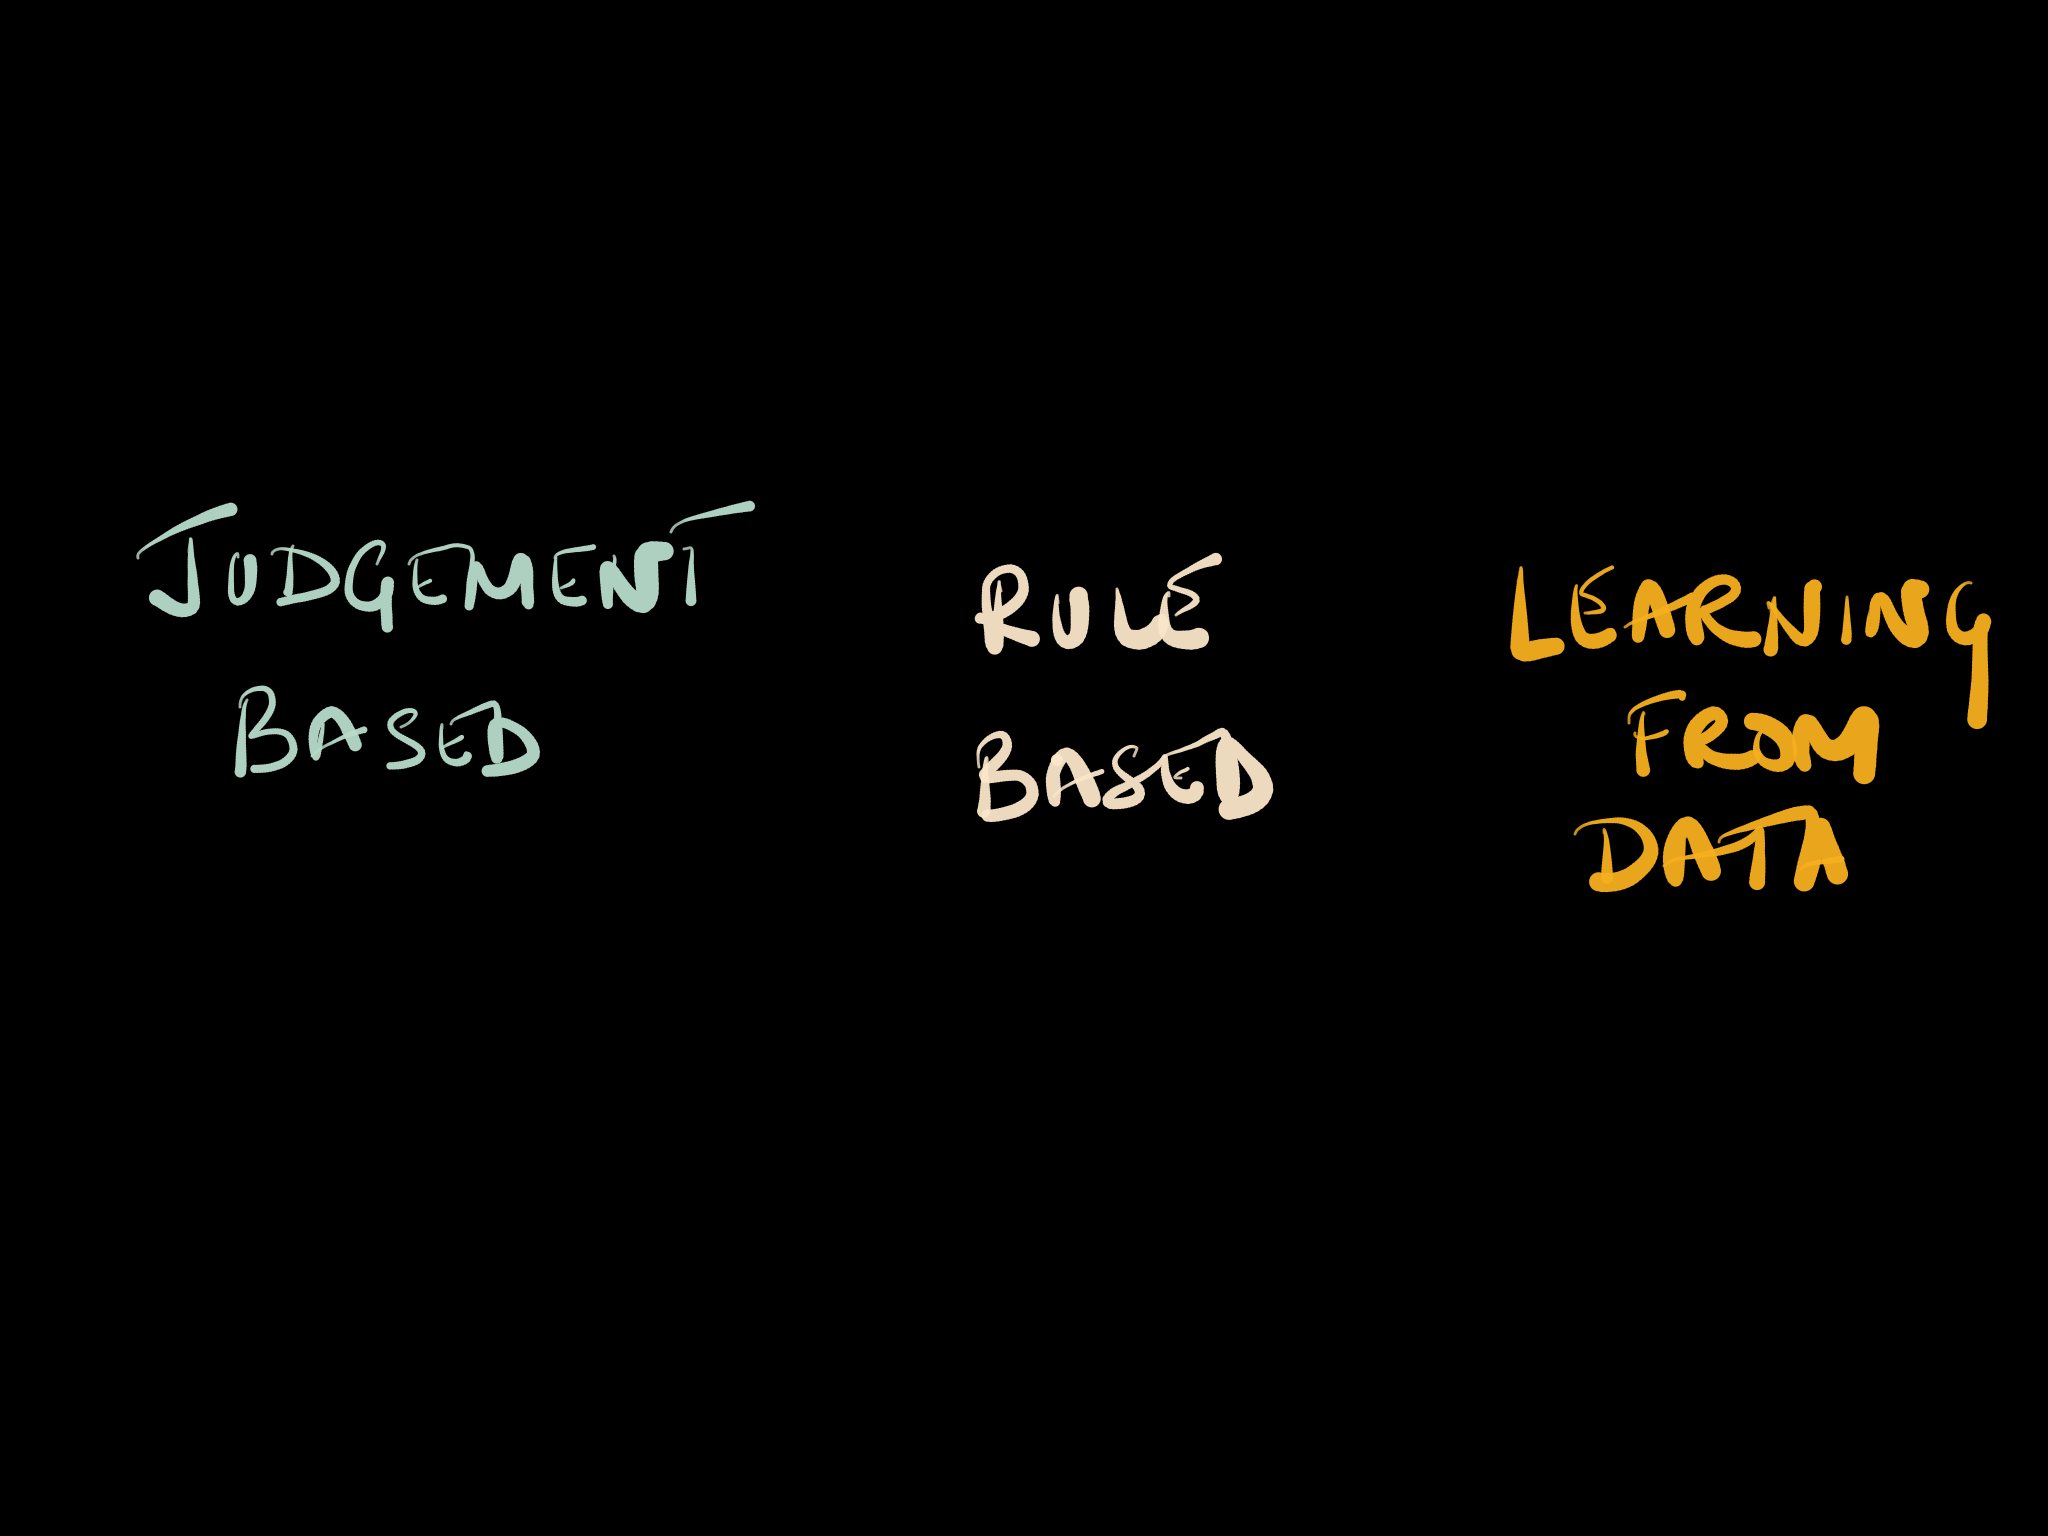 JUDGEMENT
BASED
RULE
BASED
LEARNING
FROM
DATA